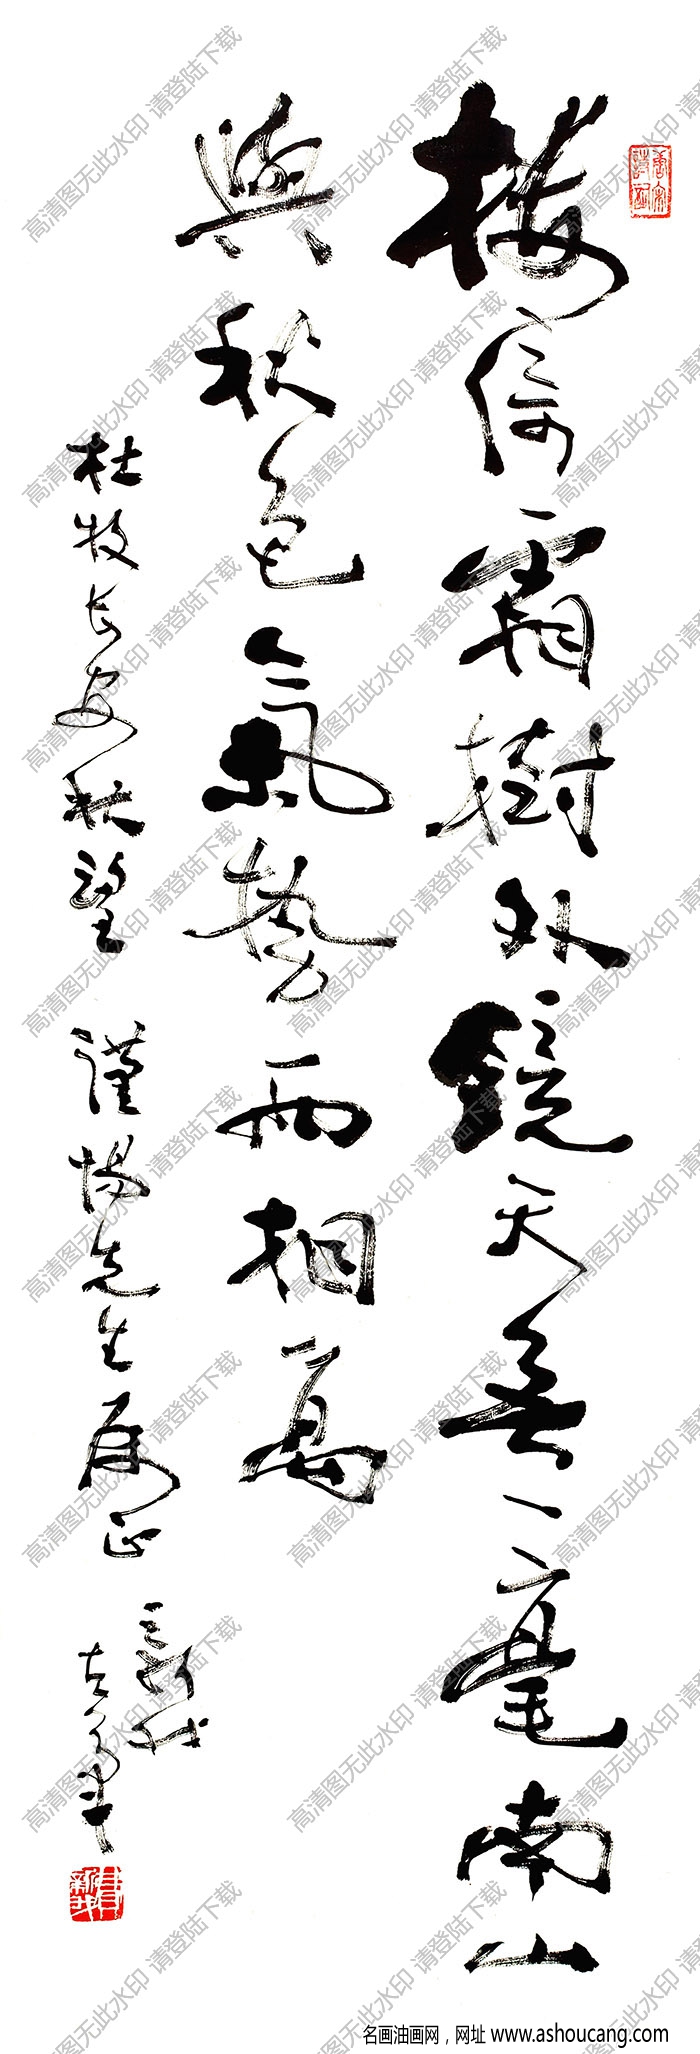 楼倚霜樹外鏡天無一毫南山
與秋色氣勢兩相高
杜牧长安秋望 謹揚先生属正
新我左筆
高清图无此水印 请登陆下载
名画油画网，网址 www.ashoucang.com